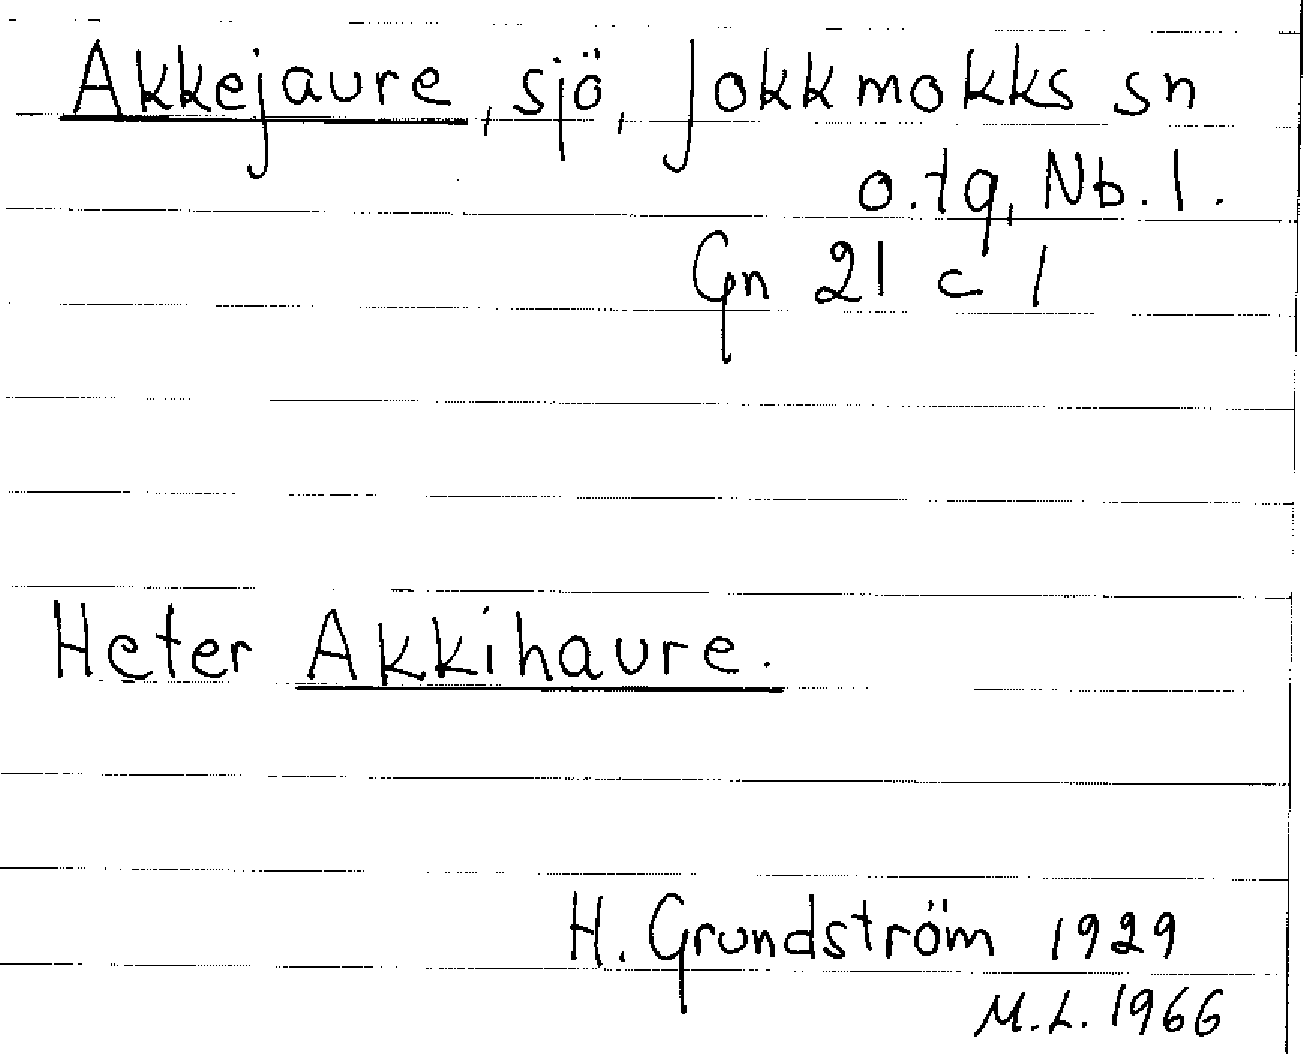 Akkejaure, sjö, Jokkmokks sn
o. tg, Nb. l.
Gn 21 c 1
Heter Akkihaure.
H. Grundström 1929
M.L. 1966